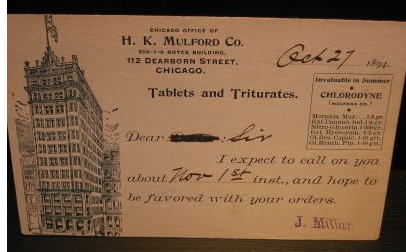 CHICAGO OFFICE OF
H. K. MULFORD CO.
506-7-8 BOYCE BUILDING,
112 DEARBORN STREET,
CHICAGO.
Oct 27 1894.
Tablets and Triturates.
Invaluable in Summer
CHLORODYNE
(MULFORD CO.)
Morphia Mur. 1-6 gr.
Ext. Cannab. Ind. 1-6 gr.
Nitro-Glycerin. 1-300 gr.
Ext. Hyoscyam. 1-2 gr.
Ol. Res. Capsic. 1-20 gtt.
Ol. Menth. Pip. 1-10 gtt.
Dear Sir
I expect to call on you
about Nov 1st inst., and hope to
be favored with your orders.
J. Millar